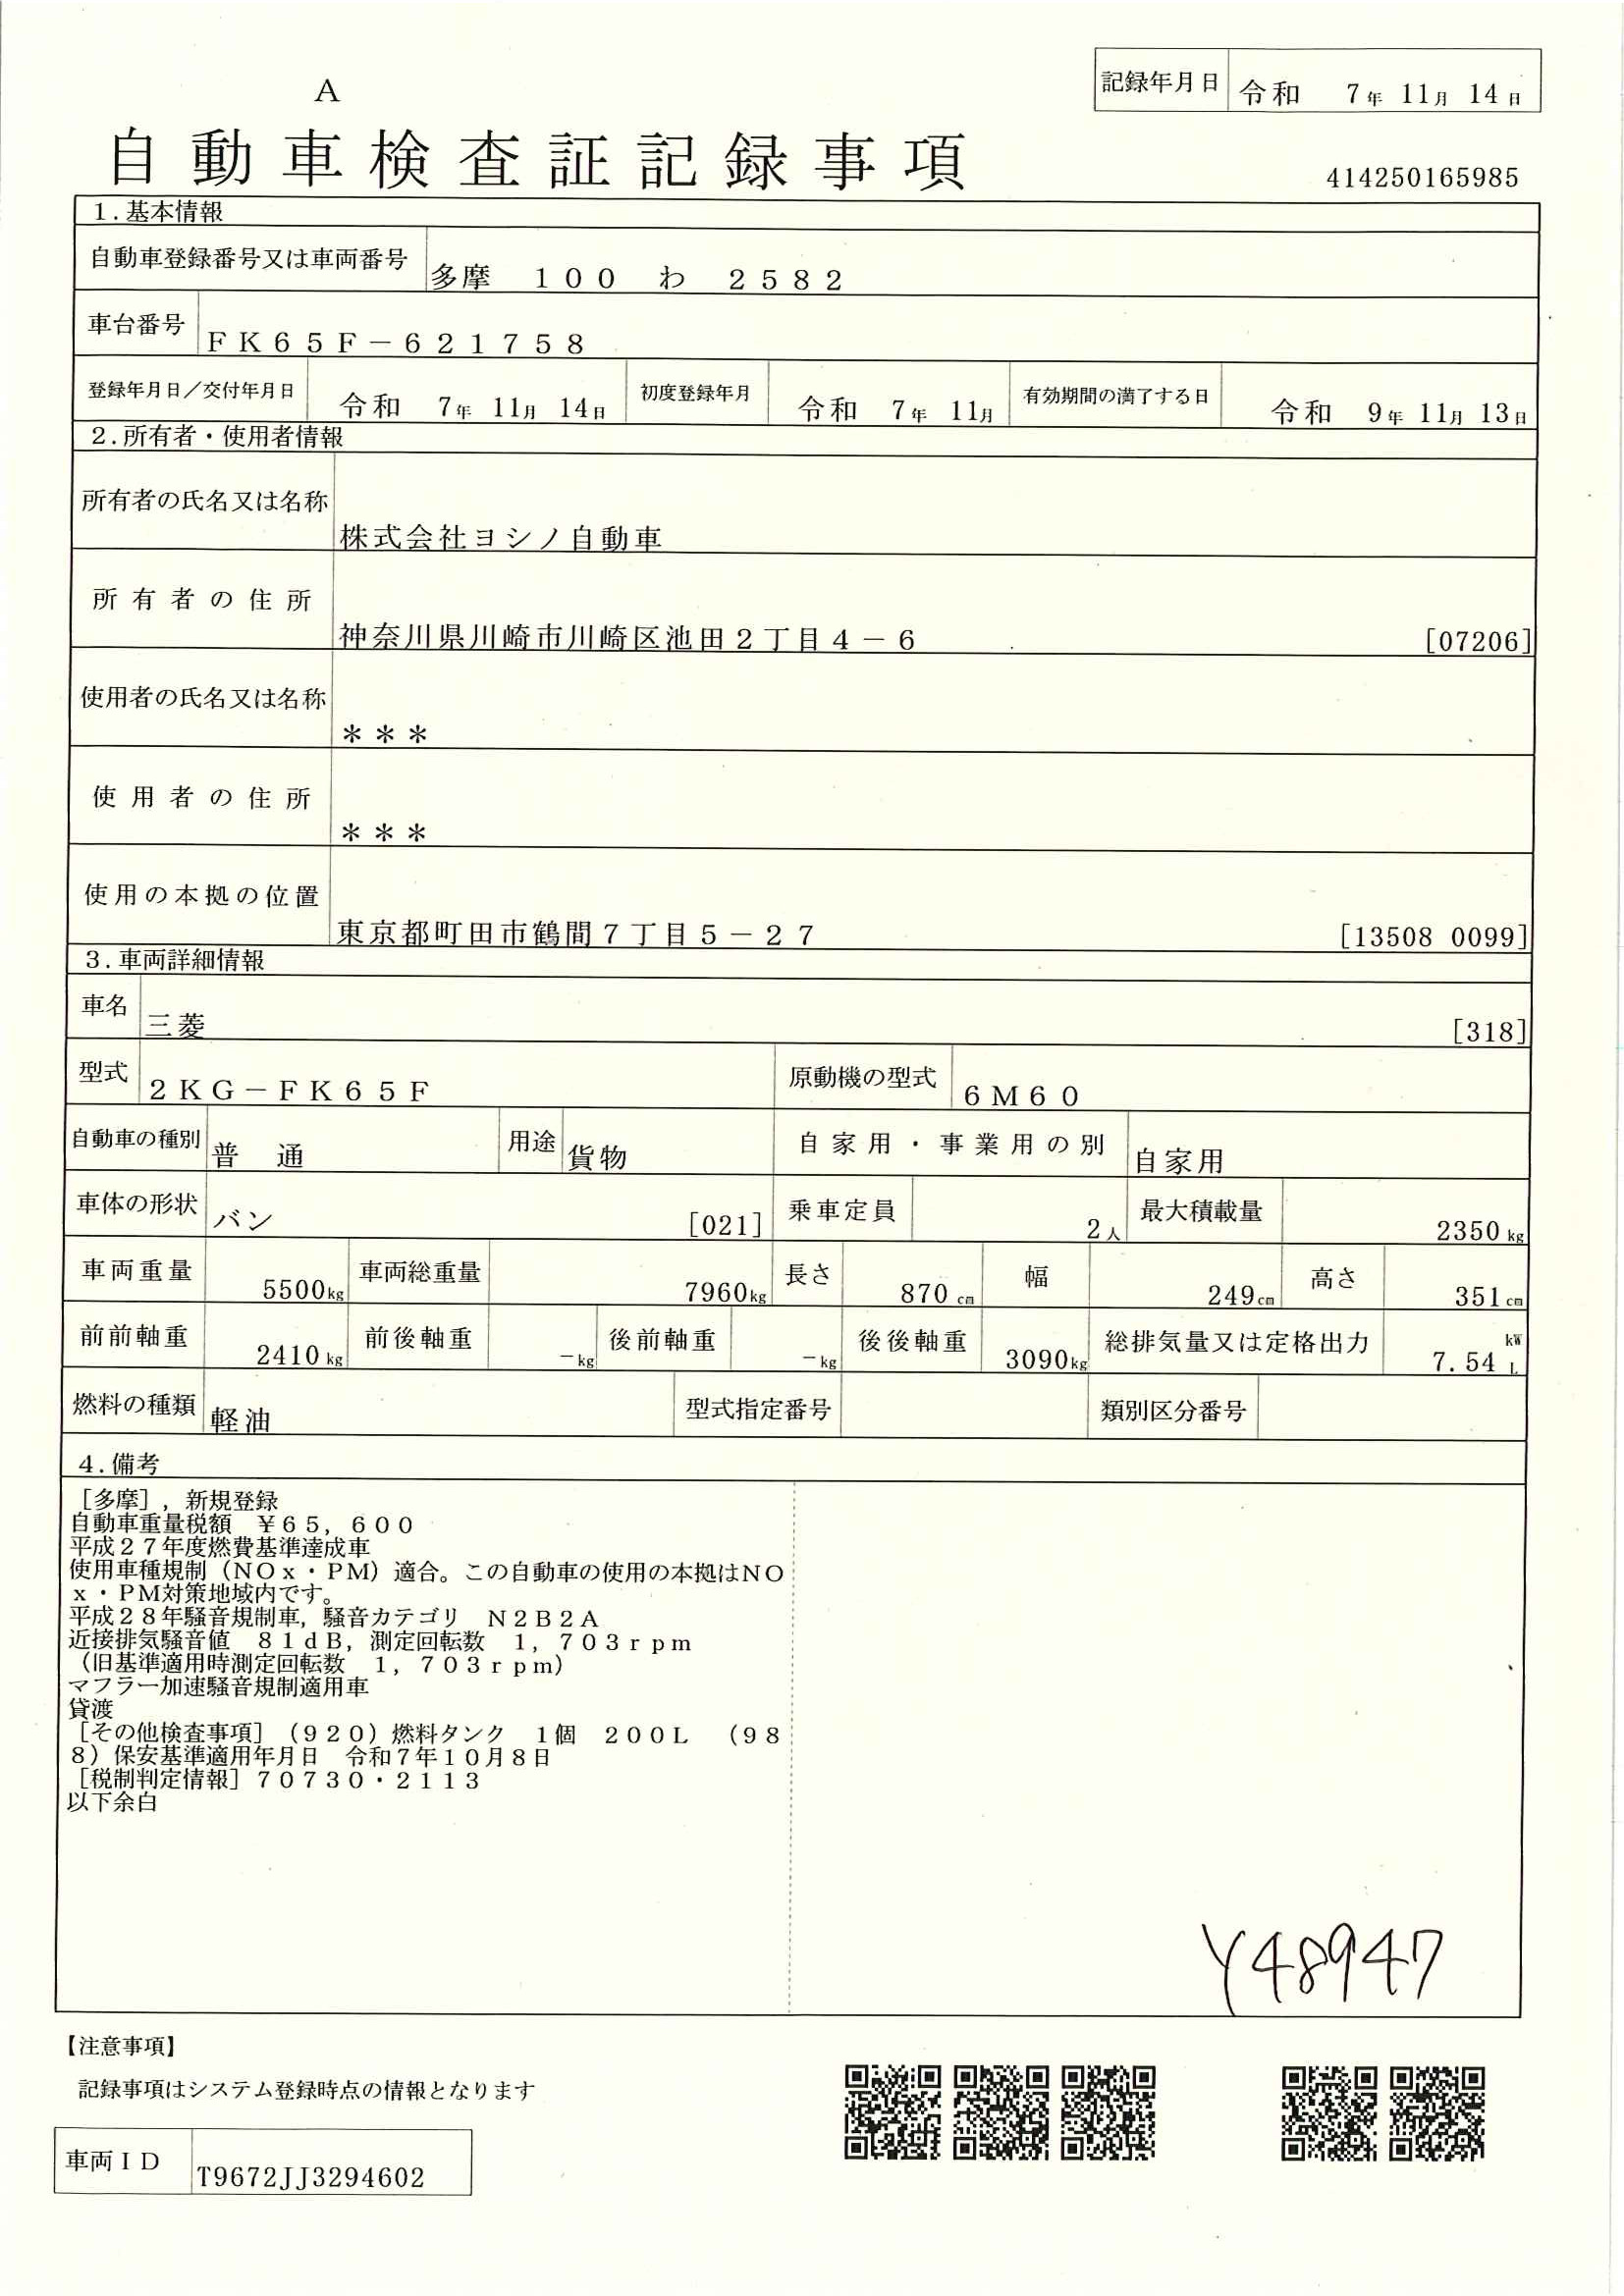 A
記録年月日 令和 7年 11月 14日
自動車検査証記録事項
414250165985
1.基本情報
自動車登録番号又は車両番号 多摩 100 わ 2582
車台番号 FK65F-621758
登録年月日/交付年月日 令和 7年 11月 14日 初度登録年月 令和 7年 11月 有効期間の満了する日 令和 9年 11月 13日
2.所有者・使用者情報
所有者の氏名又は名称 株式会社ヨシノ自動車
所有者の住所 神奈川県川崎市川崎区池田2丁目4-6 [07206]
使用者の氏名又は名称 ***
使用者の住所 ***
使用の本拠の位置 東京都町田市鶴間7丁目5-27 [13508 0099]
3.車両詳細情報
車名 三菱 [318]
型式 2KG-FK65F 原動機の型式 6M60
自動車の種別 普 通 用途 貨物 自家用・事業用の別 自家用
車体の形状 バン [021] 乗車定員 2人 最大積載量 2350kg
車両重量 5500kg 車両総重量 7960kg 長さ 870cm 幅 249cm 高さ 351cm
前前軸重 2410kg 前後軸重 -kg 後前軸重 -kg 後後軸重 3090kg 総排気量又は定格出力 7.54 kW L
燃料の種類 軽油 型式指定番号 類別区分番号
4.備考
[多摩],新規登録
自動車重量税額 ¥65,600
平成27年度燃費基準達成車
使用車種規制(NOx・PM)適合。この自動車の使用の本拠はNO
x・PM対策地域内です。
平成28年騒音規制車,騒音カテゴリ N2B2A
近接排気騒音値 81dB,測定回転数 1,703rpm
(旧基準適用時測定回転数 1,703rpm)
マフラー加速騒音規制適用車
貸渡
[その他検査事項](920)燃料タンク 1個 200L (98
8)保安基準適用年月日 令和7年10月8日
[税制判定情報]70730・2113
以下余白
Y48947
【注意事項】
記録事項はシステム登録時点の情報となります
車両ID T9672JJ3294602